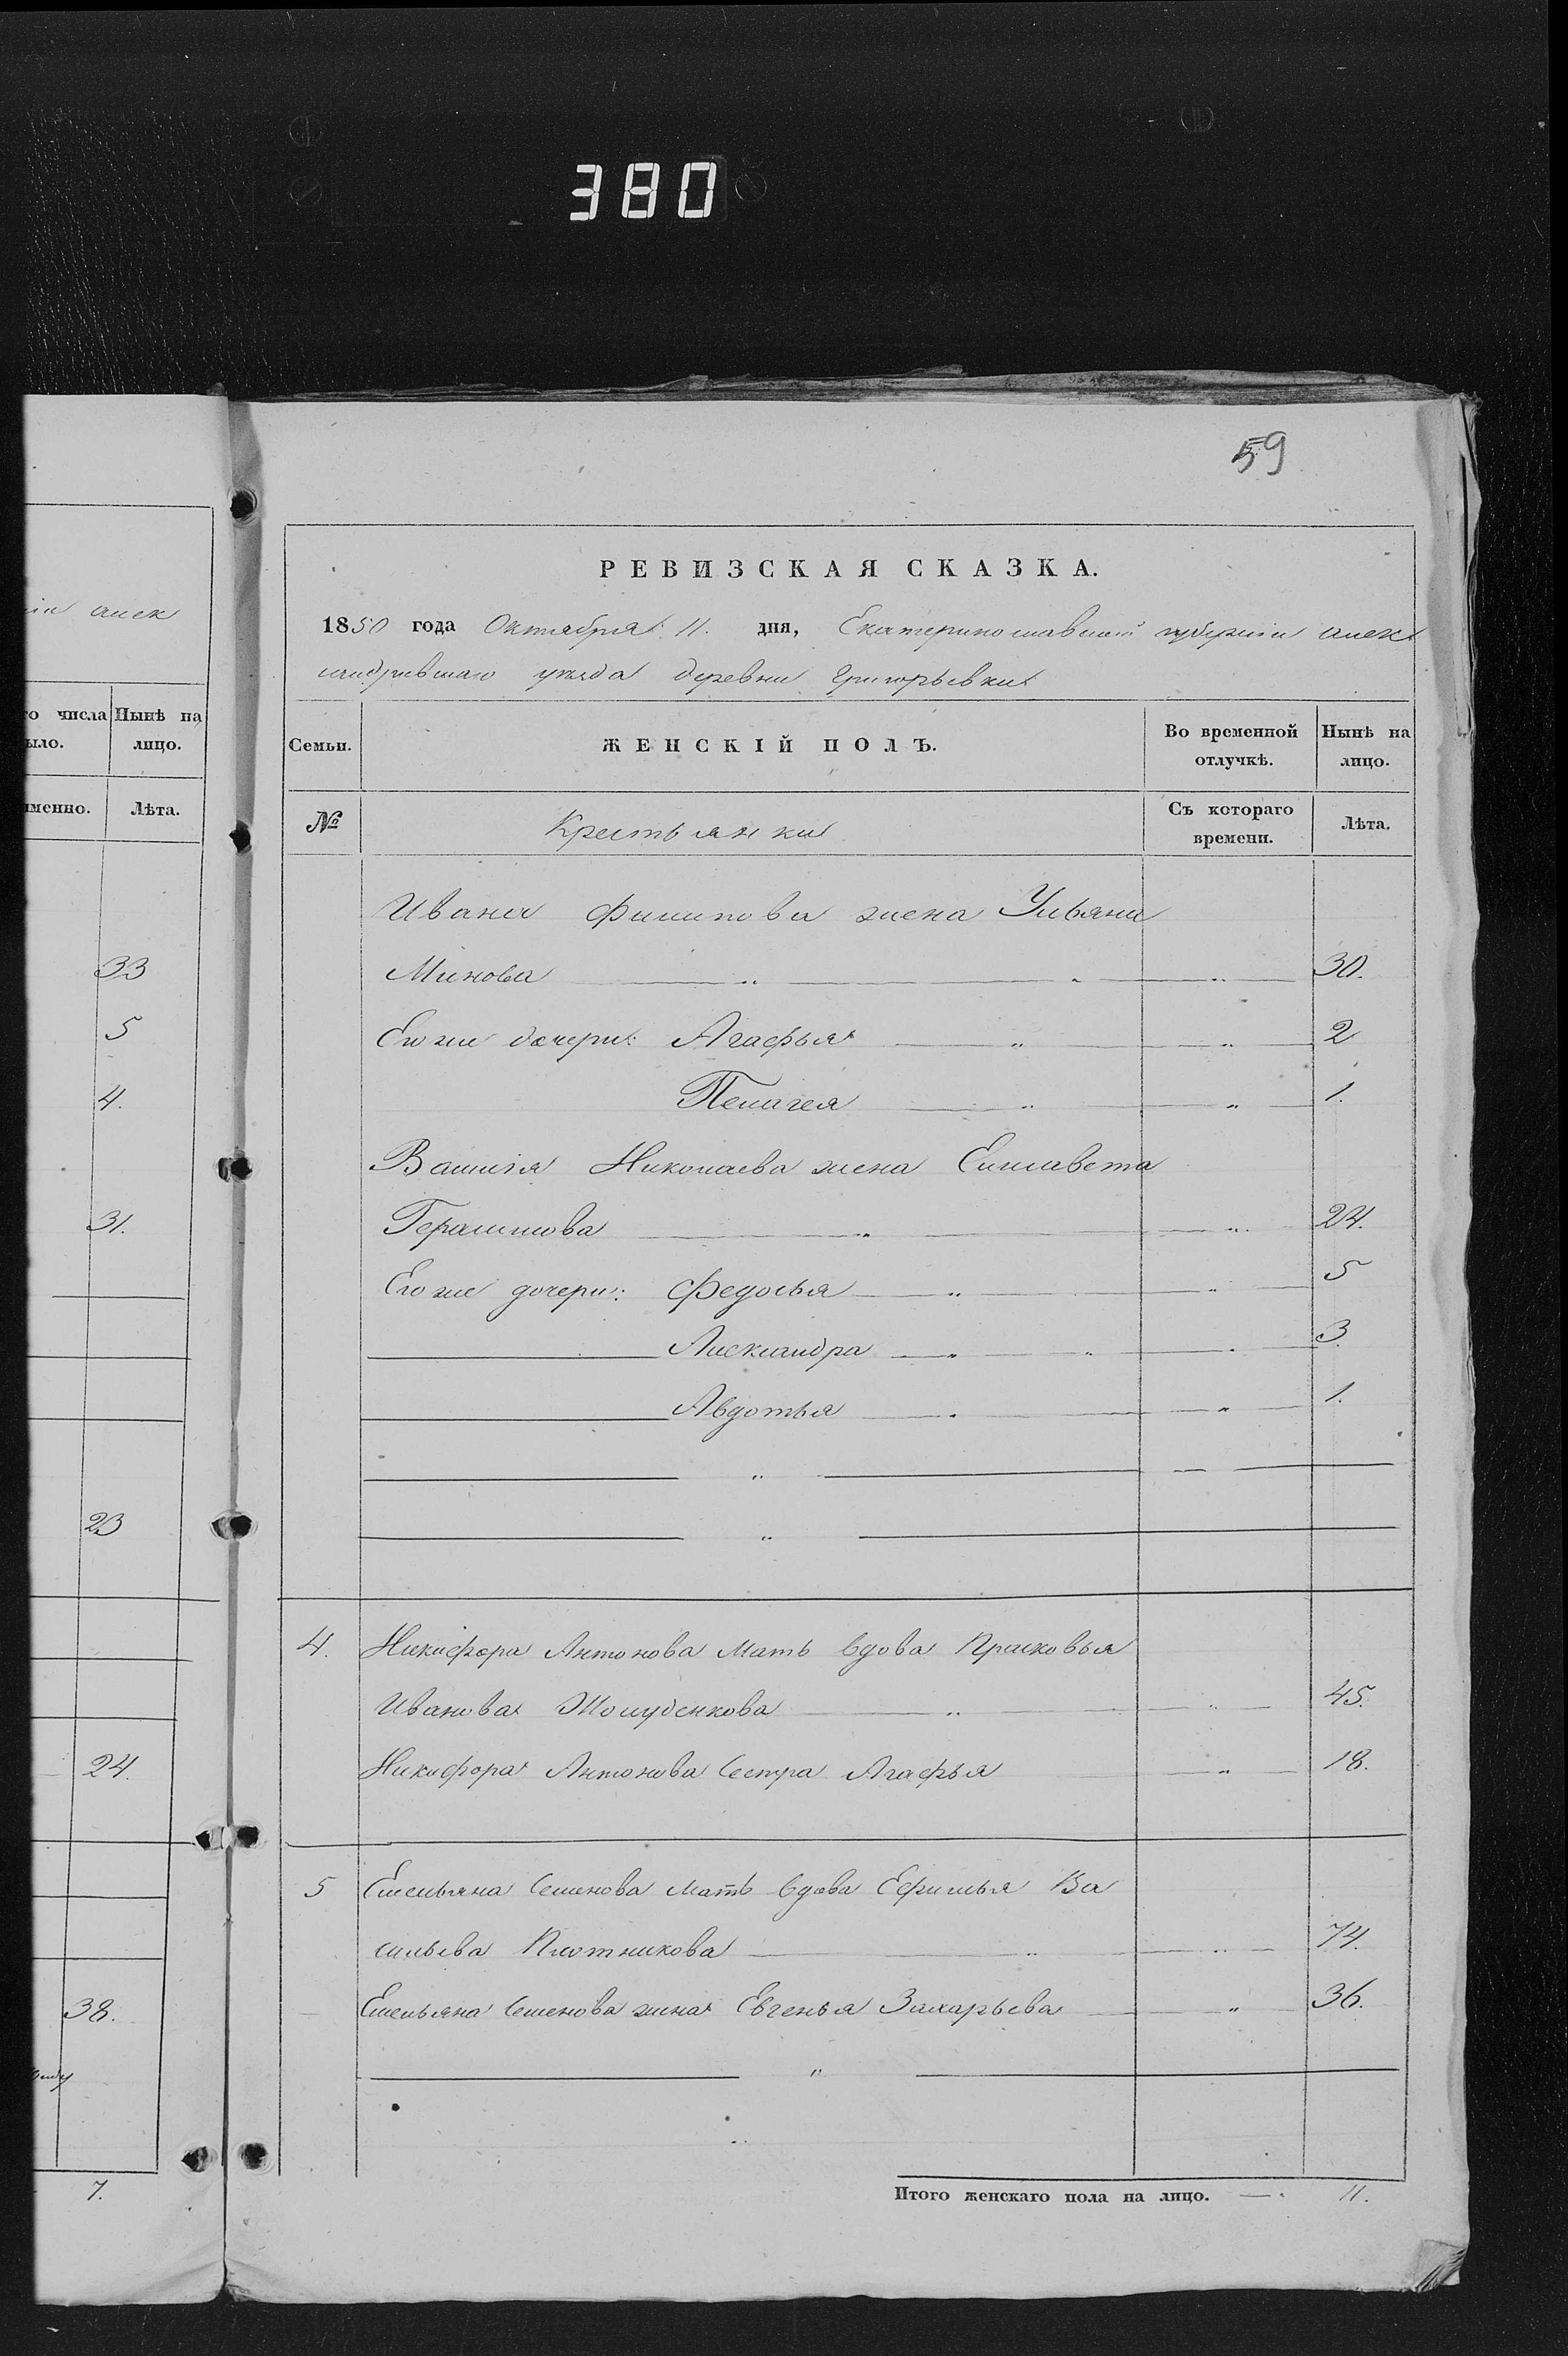 380
59
РЕВИЗСКАЯ СКАЗКА.
1850 года Октября 11. дня, Екатеринославской губернiи алек
сандровскаго уѣзда деревни Григорьевки
Семьи.
ЖЕНСКІЙ ПОЛЪ.
Во временной отлучкѣ.
Нынѣ на лицо.
№
Крестьянки
Съ котораго времени.
Лѣта.
Ивана Филипова жена Ульяна
Минова 30.
Его же дочери: Агафья 2
Пелагея 1.
Василія Николаева жена Елисавета
Герасимова 24.
Его же дочери: Федосья 5
Александра 3.
Авдотья 1.
4. Никифора Антонова мать вдова Прасковья
Иванова 45.
Никифора Антонова сестра Агафья 18.
5 Емельяна Семенова мать вдова Ефимья Ва
сильева Плотникова 74.
Емельяна Семенова жена Евгенья Захарьева 36.
Итого женскаго пола на лицо. 11.
алек
го числа
ыло.
Нынѣ на
лицо.
именно.
Лѣта.
33
5
4.
31.
23
24.
38.
7.